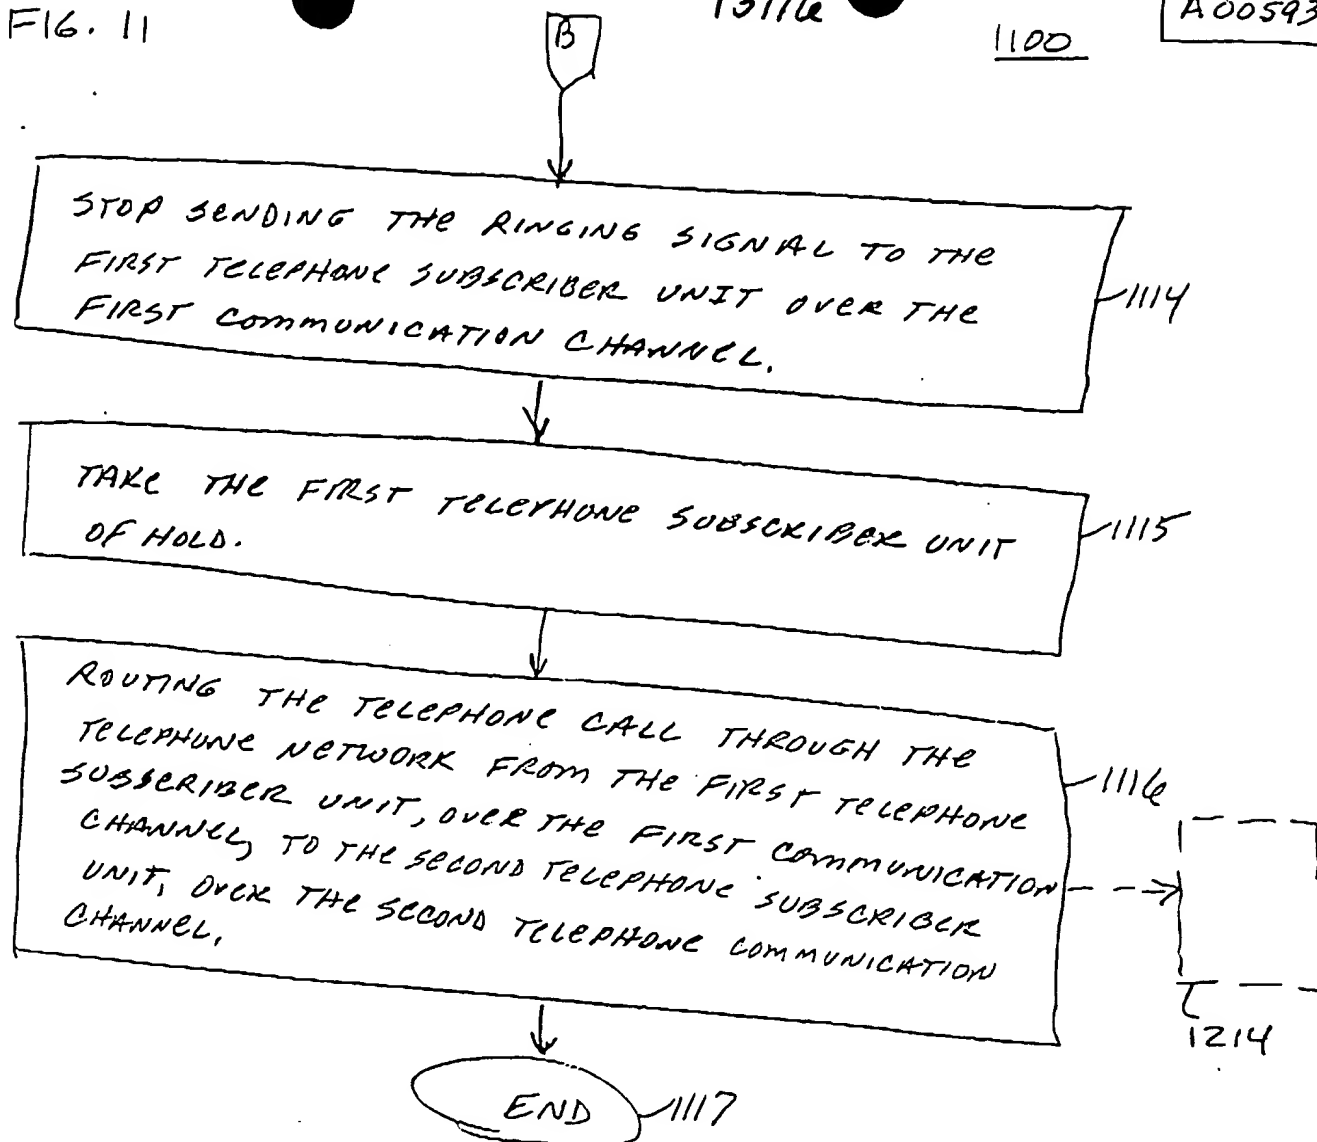 FIG. 11
13/16
1100
A00593
B
STOP SENDING THE RINGING SIGNAL TO THE
FIRST TELEPHONE SUBSCRIBER UNIT OVER THE
FIRST COMMUNICATION CHANNEL.
1114
TAKE THE FIRST TELEPHONE SUBSCRIBER UNIT
OF HOLD.
1115
ROUTING THE TELEPHONE CALL THROUGH THE
TELEPHONE NETWORK FROM THE FIRST TELEPHONE
SUBSCRIBER UNIT, OVER THE FIRST COMMUNICATION
CHANNEL, TO THE SECOND TELEPHONE SUBSCRIBER
UNIT, OVER THE SECOND TELEPHONE COMMUNICATION
CHANNEL.
1116
1214
END
1117